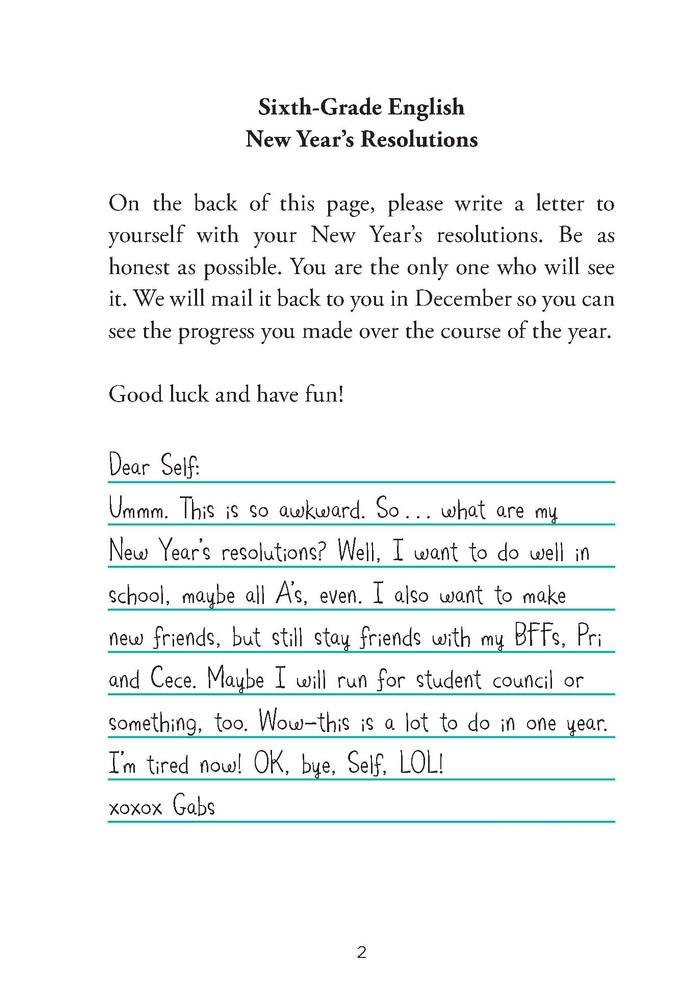 Sixth-Grade English
New Year's Resolutions
On the back of this page, please write a letter to
yourself with your New Year's resolutions. Be as
honest as possible. You are the only one who will see
it. We will mail it back to you in December so you can
see the progress you made over the course of the year.
Good luck and have fun!
Dear Self:
Ummm. This is so awkward. So... what are my
New Year's resolutions? Well, I want to do well in
school, maybe all A's, even. I also want to make
new friends, but still stay friends with my BFFs, Pri
and Cece. Maybe I will run for student council or
something, too. Wow—this is a lot to do in one year.
I'm tired now! OK, bye, Self, LOL!
xoxox Gabs
2